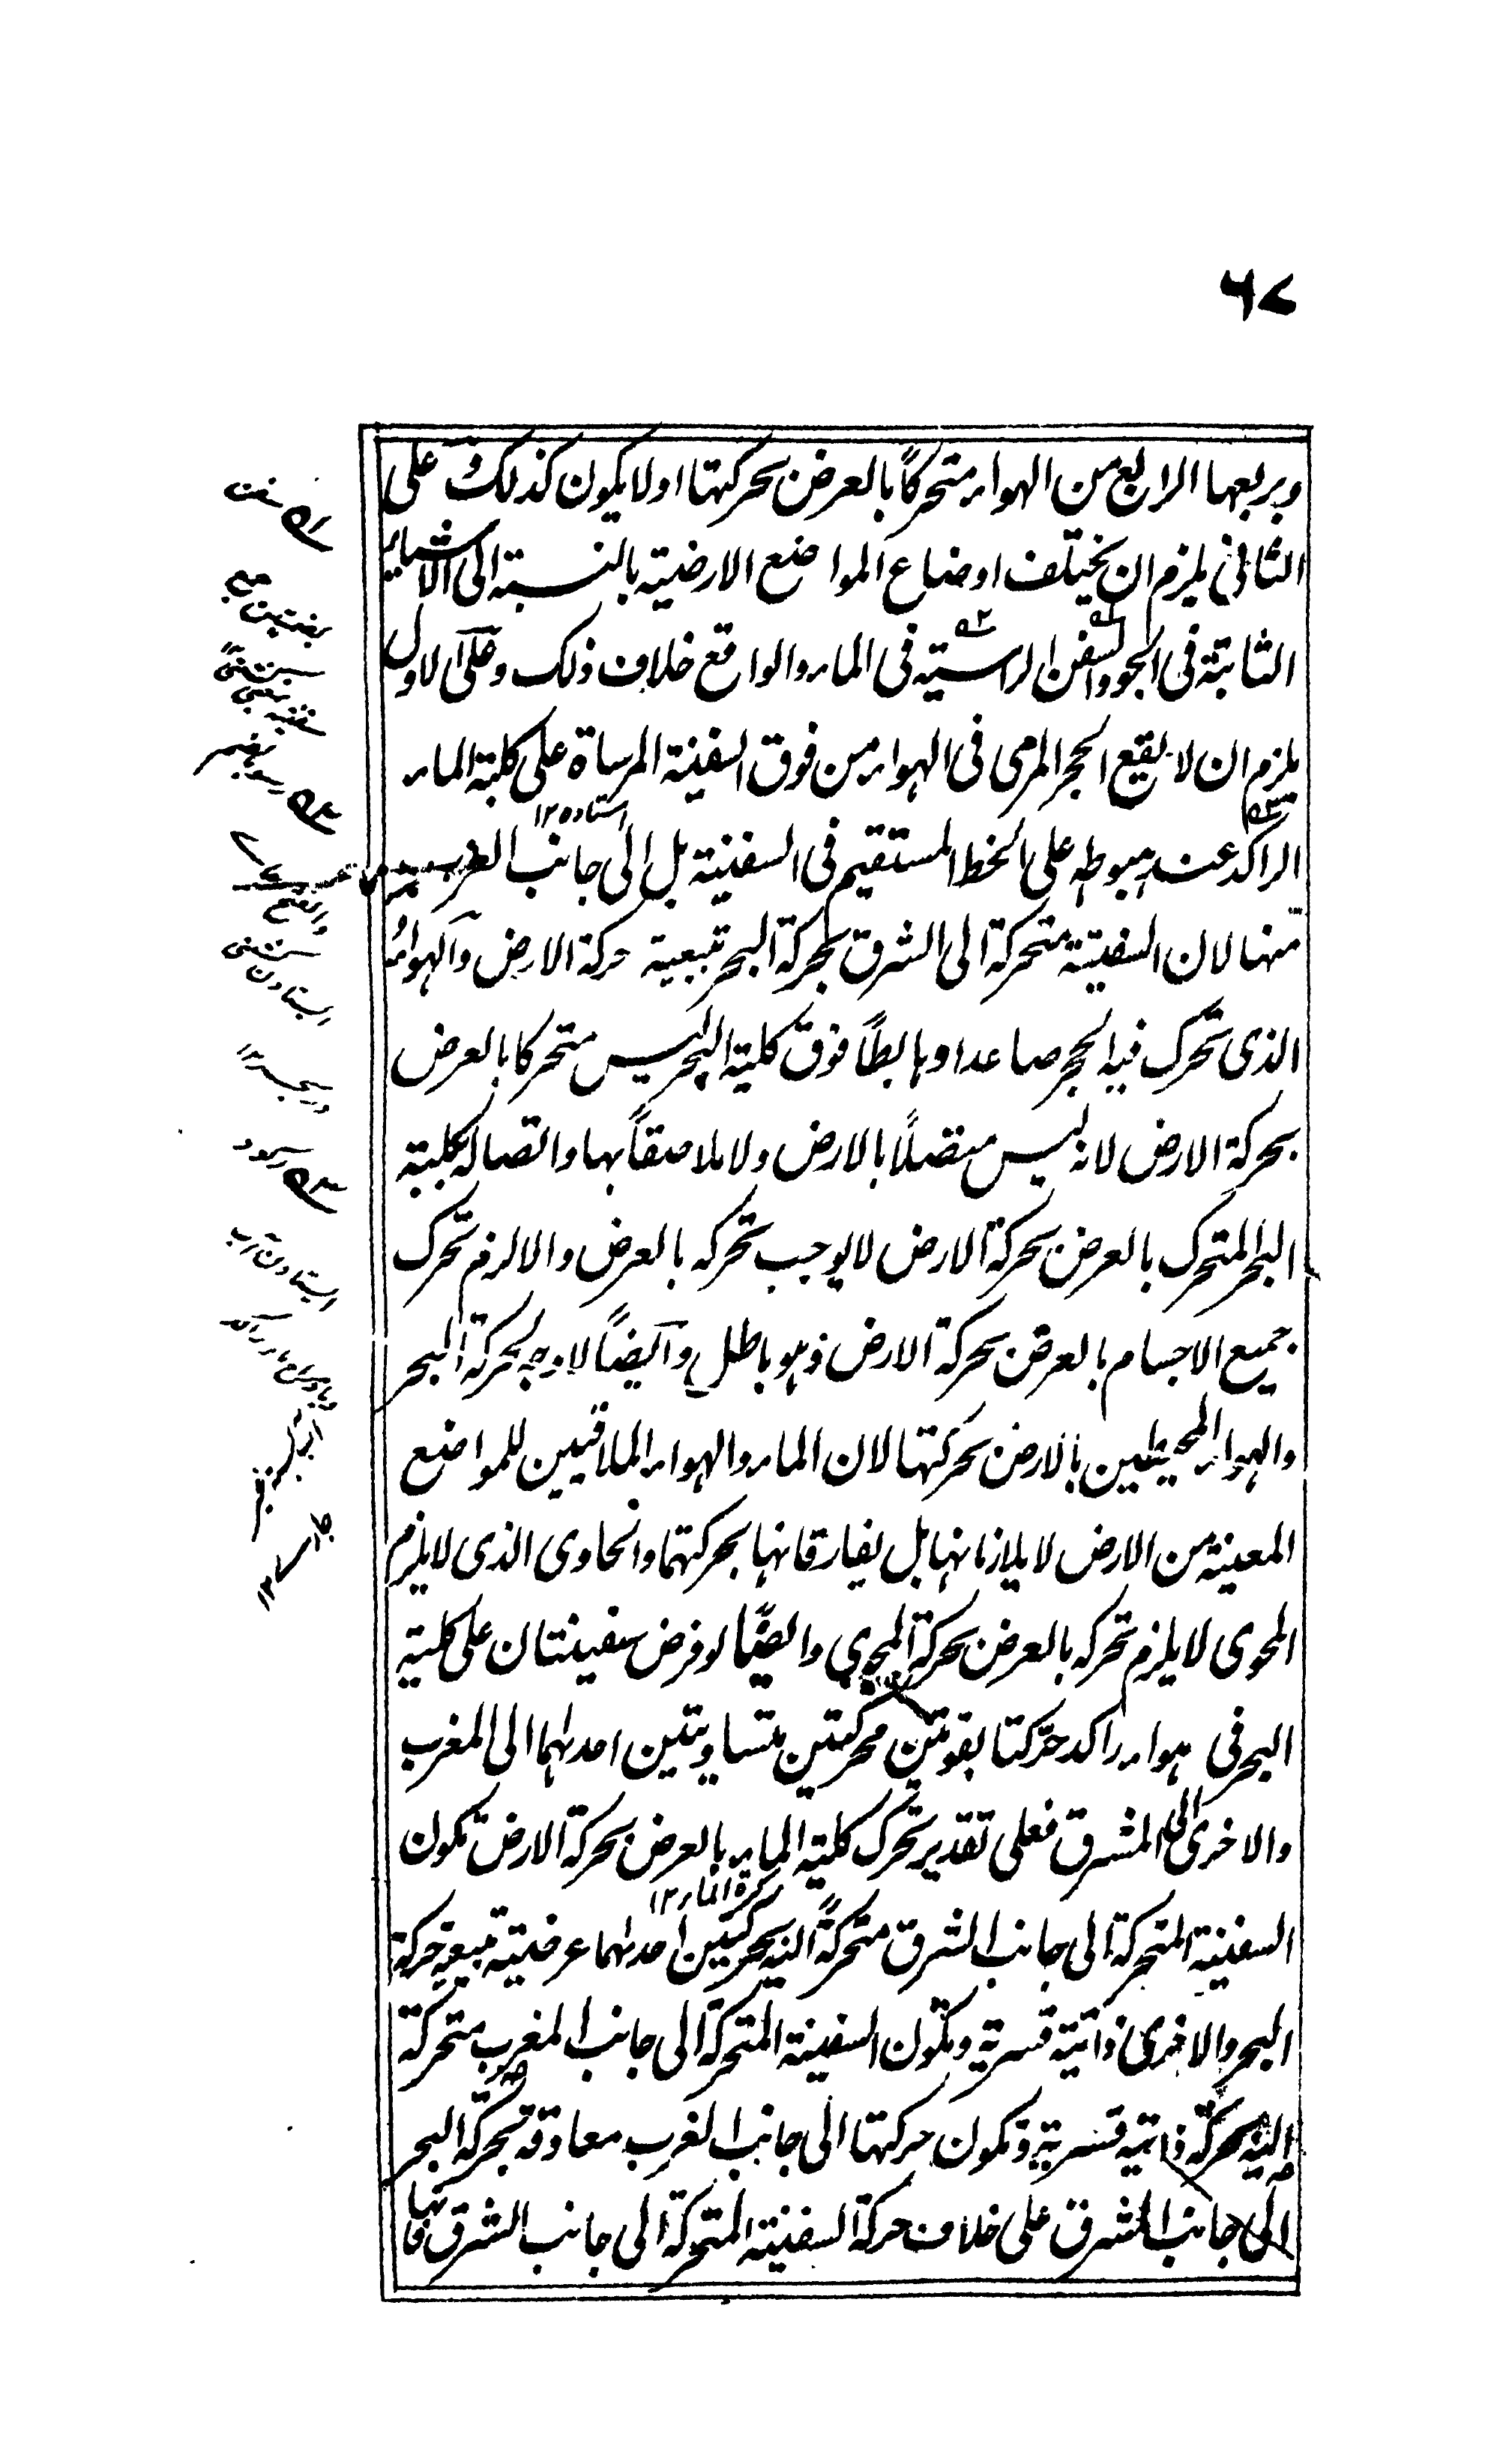 ٦٧
وبربعها الرابع من الهواء متحركاً بالعرض بحركتها اولا يكون كذلك وعلى
الثانى يلزم ان يختلف اوضاع المواضع الارضية بالنسبة الى الاشياء
الثابتة فى الجو والسفن الراسية فى الماء والواقع خلاف ذلك وعلى الاول
يلزم ان لا يقع الحجر المرمى فى الهواء من فوق السفينة المرساة على كلية الماء
استاده ١٢
الراكد عند هبوطه على الخط المستقيم فى السفينة بل الى جانب الغرب
منها لان السفينة متحركة الى الشرق بحركة البحر تبعية حركة الارض والهواء
الذى تحرك فيه الحجر صاعدا وهابطاً فوق كلية البحر ليس متحركا بالعرض
بحركة الارض لانه ليس متصلاً بالارض ولا ملاصقاً بها واتصاله بكلية
البحر المتحرك بالعرض بحركة الارض لا يوجب تحركه بالعرض والا لزم تحرك
جميع الاجسام بالعرض بحركة الارض وهو باطل وايضاً لا وجه لحركة البحر
والهواء المحيطين بالارض بحركتها لان الماء والهواء الملاقيين للمواضع
المعينة من الارض لا يلازمانها بل يفارقانها بحركتهما والحاوى الذى لا يلزم
المحوى لا يلزم تحركه بالعرض بحركة المحوى وايضًا لو فرض سفينتان على كلية
البحر فى هواء راكد حرّكتا بقوتين محركتين متساويتين احدٰهما الى المغرب
والاخرى الى المشرق فعلى تقدير تحرك كلية الماء بالعرض بحركة الارض تكون
كرة الماء ١٢
السفينة المتحركة الى جانب الشرق متحركةً اليه بحركتين احدٰهما عرضية تبعية حركة
البحر والاخرى ذاتية قسرية وتكون السفينة المتحركة الى جانب المغرب متحركة
اليه بحركة ذاتية قسرية وتكون حركتها الى جانب الغرب معاوقة بحركة البحر
الى جانب المشرق على خلاف حركة السفينة المتحركة الى جانب الشرق فانها
سفن
بضمتين جمع
راسية
ركود
ايستادن آب